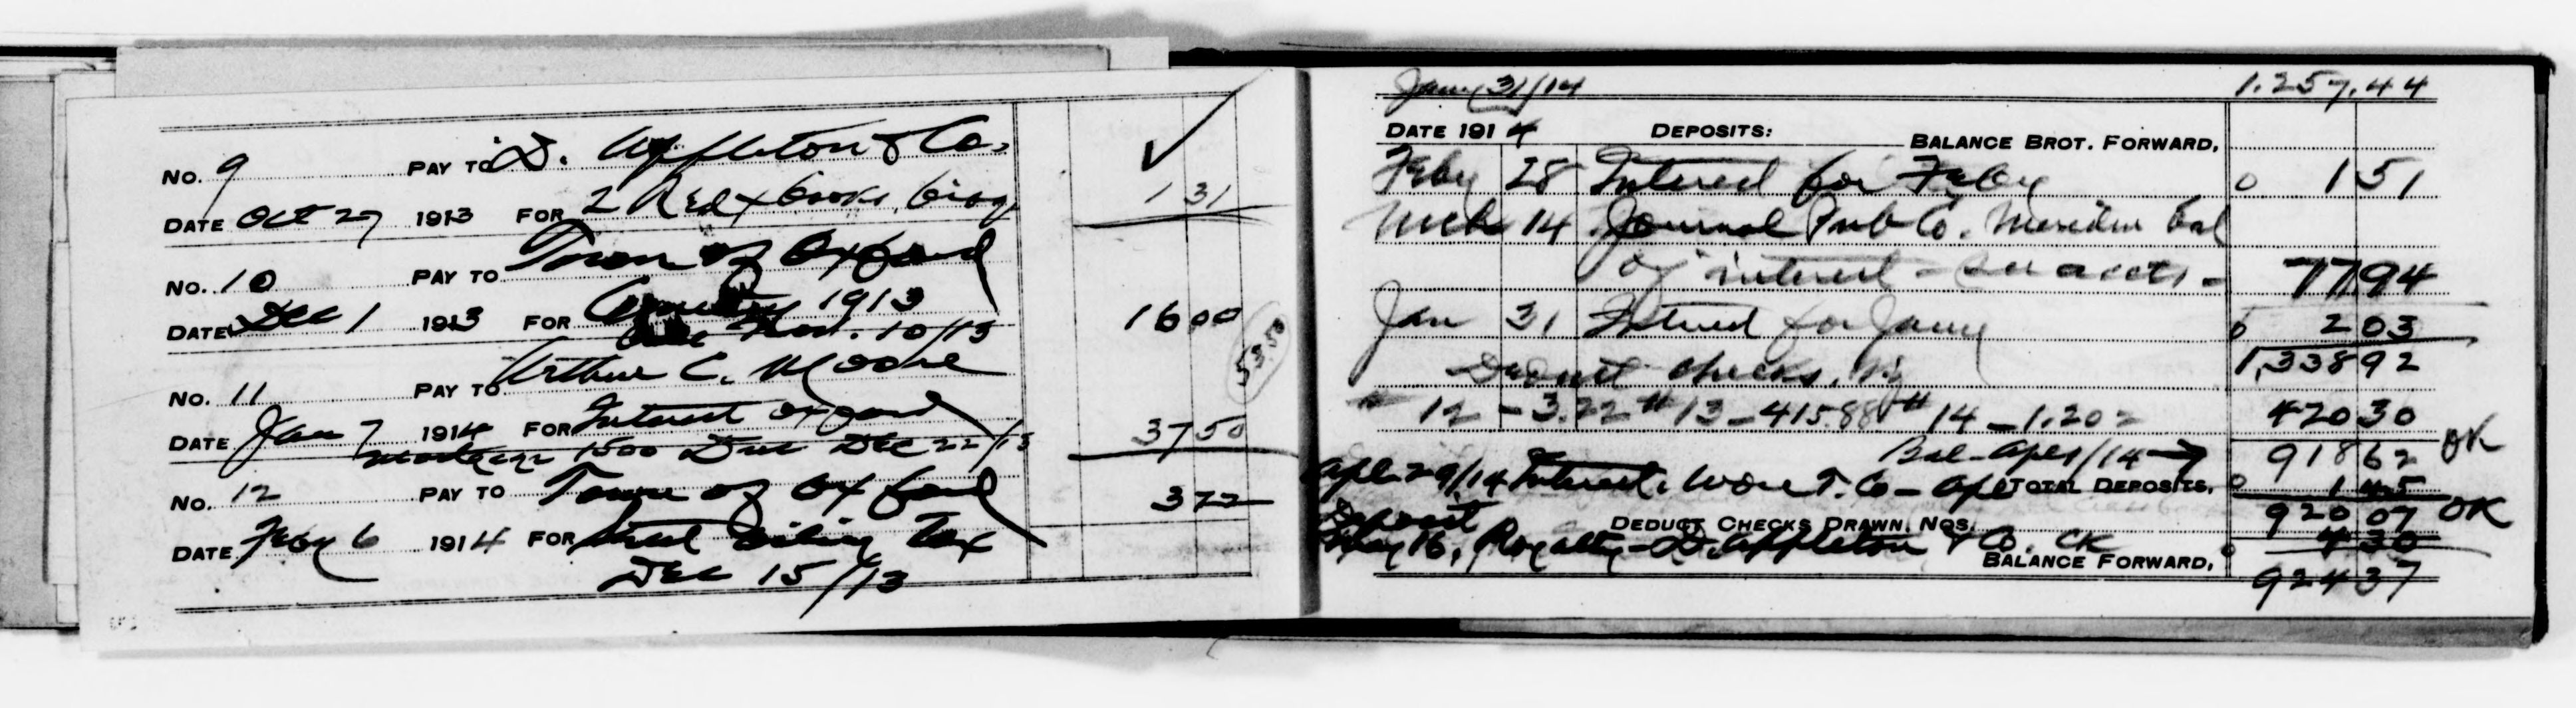 No. 9 PAY TO D. Appleton & Co.
DATE Oct 27 1913 FOR 2 Red x books, biog 1 31
No. 10 PAY TO Town of Oxford
DATE Dec 1 1913 FOR 1913 16 00
Nov. 10/13
53.50
No. 11 PAY TO Arthur C. Moore
DATE Jan 7 1914 FOR Interest Oxford 37 50
1500 Due Dec 22/13
No. 12 PAY TO Town of Oxford 3 22
DATE Feby 6 1914 FOR Street Tax
Dec 15/13
Jany 31/14 1.257.44
DATE 1914 DEPOSITS: BALANCE BROT. FORWARD,
Feby 28 Interest for Feby 0 1 51
Mch 14 Journal Pub Co. Meriden bal
of interest - 77 94
Jan 31 Interest for Jany 0 2 03
Deduct checks. 1,338 92
" 12 - 3.22 # 13 - 415.88 # 14 - 1.20 420 30
Bal - Apl 1/14 → 918 62 OK
Apl 29/14 Interest. Wor T. Co - Apl TOTAL DEPOSITS, 0 1 45
Deposit 920 07 OK
DEDUCT CHECKS DRAWN, NOS.
May 16, Royalty - D. Appleton & Co. CK 0 4 30
BALANCE FORWARD, 924 37